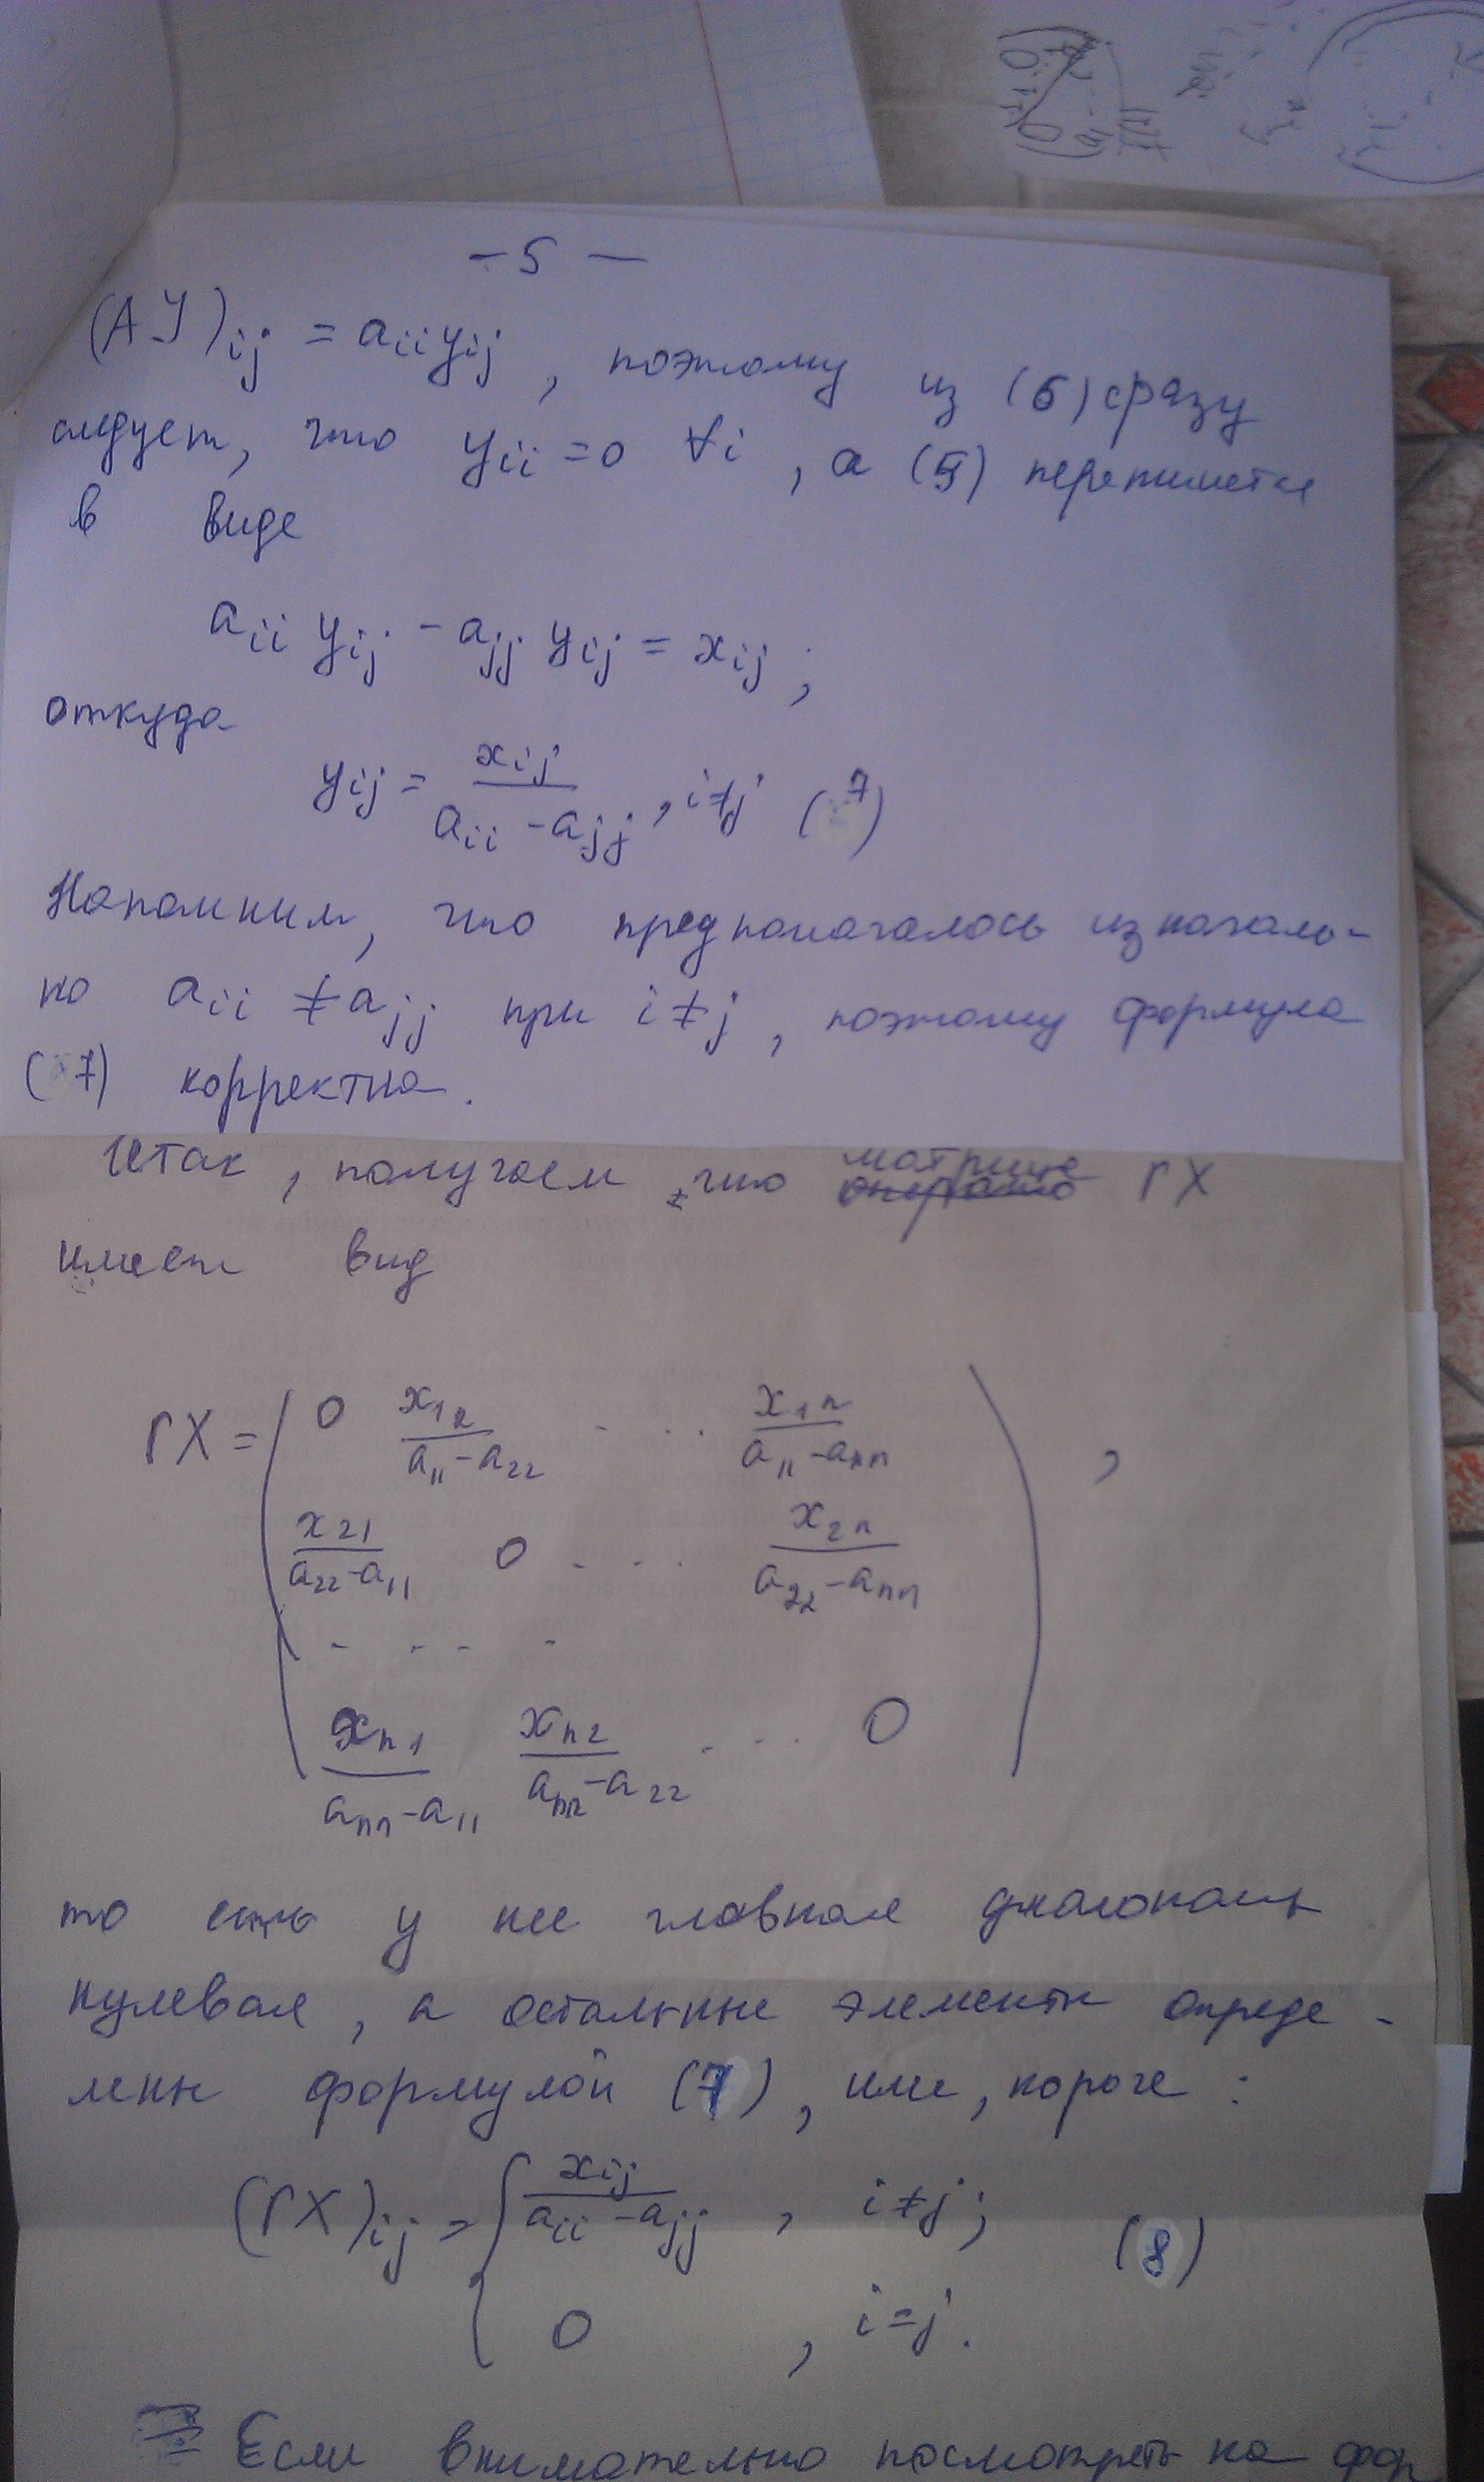 – 5 –
(AY)ij = aii yij , поэтому из (6) сразу
следует, что yii = 0 ∀i , а (5) перепишется
в виде
aii yij – ajj yij = xij ;
откуда
yij = xij / (aii – ajj) , i≠j (7)
Напомним, что предполагалось изначаль-
но aii ≠ ajj при i ≠ j , поэтому формула
(7) корректна.
Итак , получаем , что матрица ГX
имеет вид
ГX = ( 0 x12 / (a11 – a22) . . . x1n / (a11 – ann) ) ,
x21 / (a22 – a11) 0 . . . x2n / (a22 – ann)
. . . .
xn1 / (ann – a11) xn2 / (ann – a22) . . . 0
то есть у нее главная диагональ
нулевая , а остальные элементы опреде-
лены формулой (7) , или , короче :
(ГX)ij = { xij / (aii – ajj) , i ≠ j ; (8)
0 , i = j .
Если внимательно посмотреть на фор